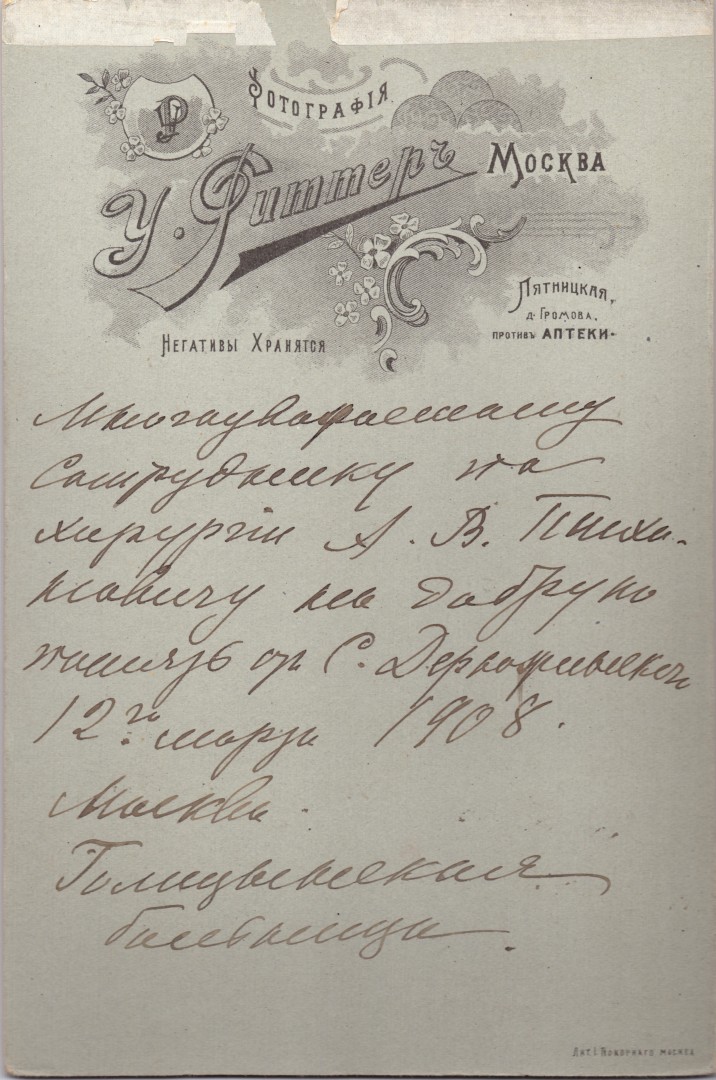 Фотографія
У. Риттеръ
Москва
Пятницкая,
д. Громова,
противъ аптеки
Негативы Хранятся
Многоуважаемому
Сотруднику по
хирургіи А. В.
на добрую
память от С.
12го марта 1908.
Москва.
Голицынская
больница.
Лит. І. Покорнаго Москва